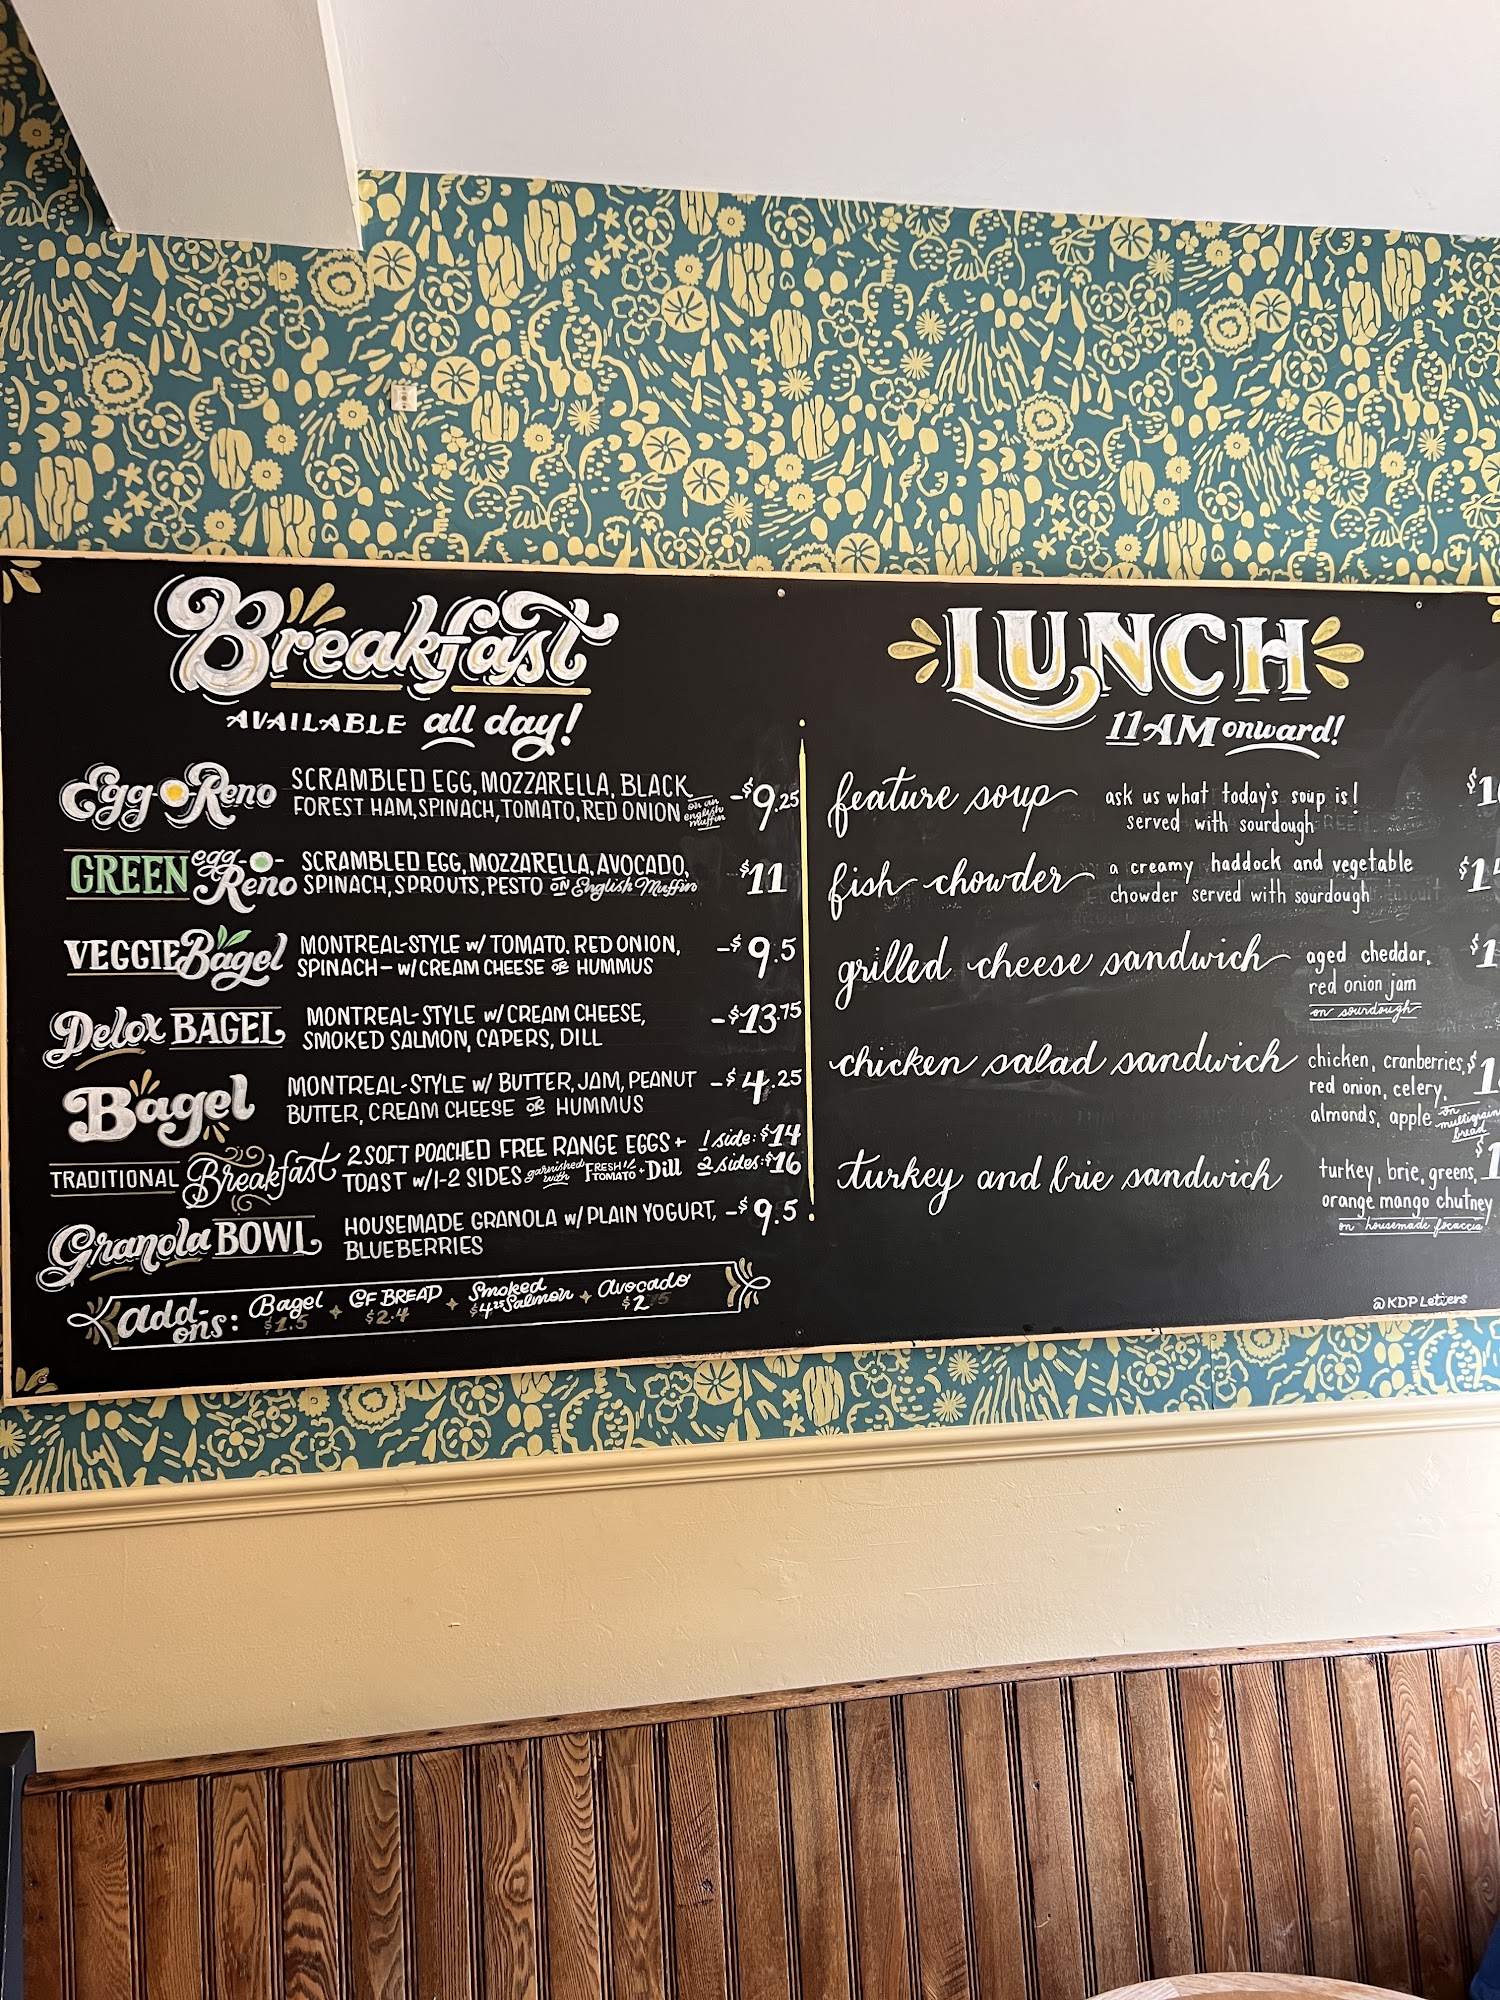 Breakfast
AVAILABLE all day!
Egg-O-Reno SCRAMBLED EGG, MOZZARELLA, BLACK
FOREST HAM, SPINACH, TOMATO, RED ONION on an english muffin -$9.25
GREEN egg-O-Reno SCRAMBLED EGG, MOZZARELLA, AVOCADO,
SPINACH, SPROUTS, PESTO ON English Muffin $11
VEGGIE Bagel MONTREAL-STYLE w/ TOMATO. RED ONION,
SPINACH - w/CREAM CHEESE OR HUMMUS -$9.5
Delox BAGEL MONTREAL-STYLE w/ CREAM CHEESE,
SMOKED SALMON, CAPERS, DILL -$13.75
Bagel MONTREAL-STYLE w/ BUTTER, JAM, PEANUT
BUTTER, CREAM CHEESE OR HUMMUS -$4.25
TRADITIONAL Breakfast 2 SOFT POACHED FREE RANGE EGGS + 1 side: $14
TOAST w/1-2 SIDES garnished with FRESH TOMATO + Dill 2 sides: $16
Granola BOWL HOUSEMADE GRANOLA w/ PLAIN YOGURT, -$9.5
BLUEBERRIES
Add-ons: Bagel $1.5 + GF BREAD $2.4 + Smoked Salmon $4.25 + Avocado $2.75
LUNCH
11AM onward!
feature soup ask us what today's soup is!
served with sourdough
fish chowder a creamy haddock and vegetable
chowder served with sourdough
grilled cheese sandwich aged cheddar,
red onion jam
on sourdough
chicken salad sandwich chicken, cranberries,
red onion, celery,
almonds, apple on multigrain bread
turkey and brie sandwich turkey, brie, greens,
orange mango chutney
on housemade focaccia
@KDPLetters